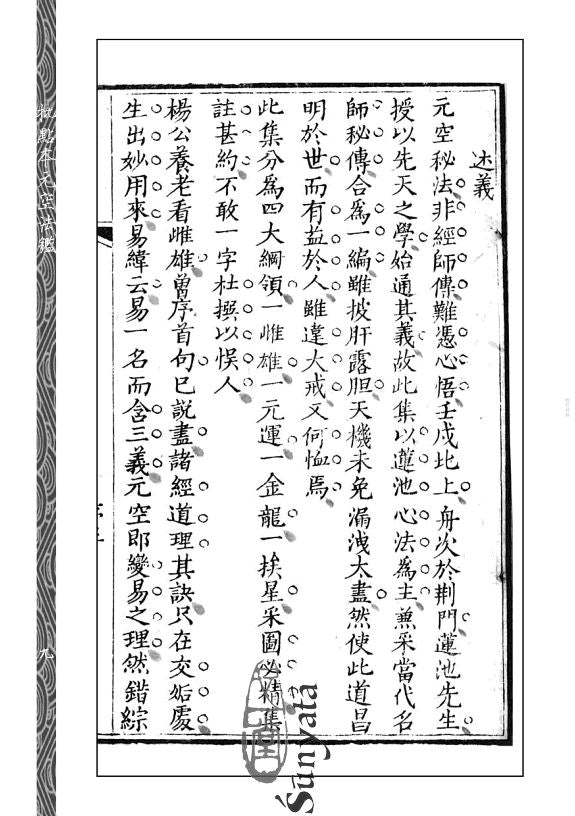 述義
元空秘法非經師傳難憑心悟壬戌北上舟次於荆門蓮池先生
授以先天之學始通其義故此集以蓮池心法為主兼采當代名
師秘傳合為一編雖披肝露胆天機未免漏洩太盡然使此道昌
明於世而有益於人雖違大戒又何恤焉
此集分為四大綱領一雌雄一元運一金龍一挨星采圖必精集
註甚約不敢一字杜撰以悞人
楊公養老看雌雄曾序首句已說盡諸經道理其訣只在交姤處
生出妙用來易緯云易一名而含三義元空即變易之理然錯綜
批點本元空法鑑
九
Śūnyatā